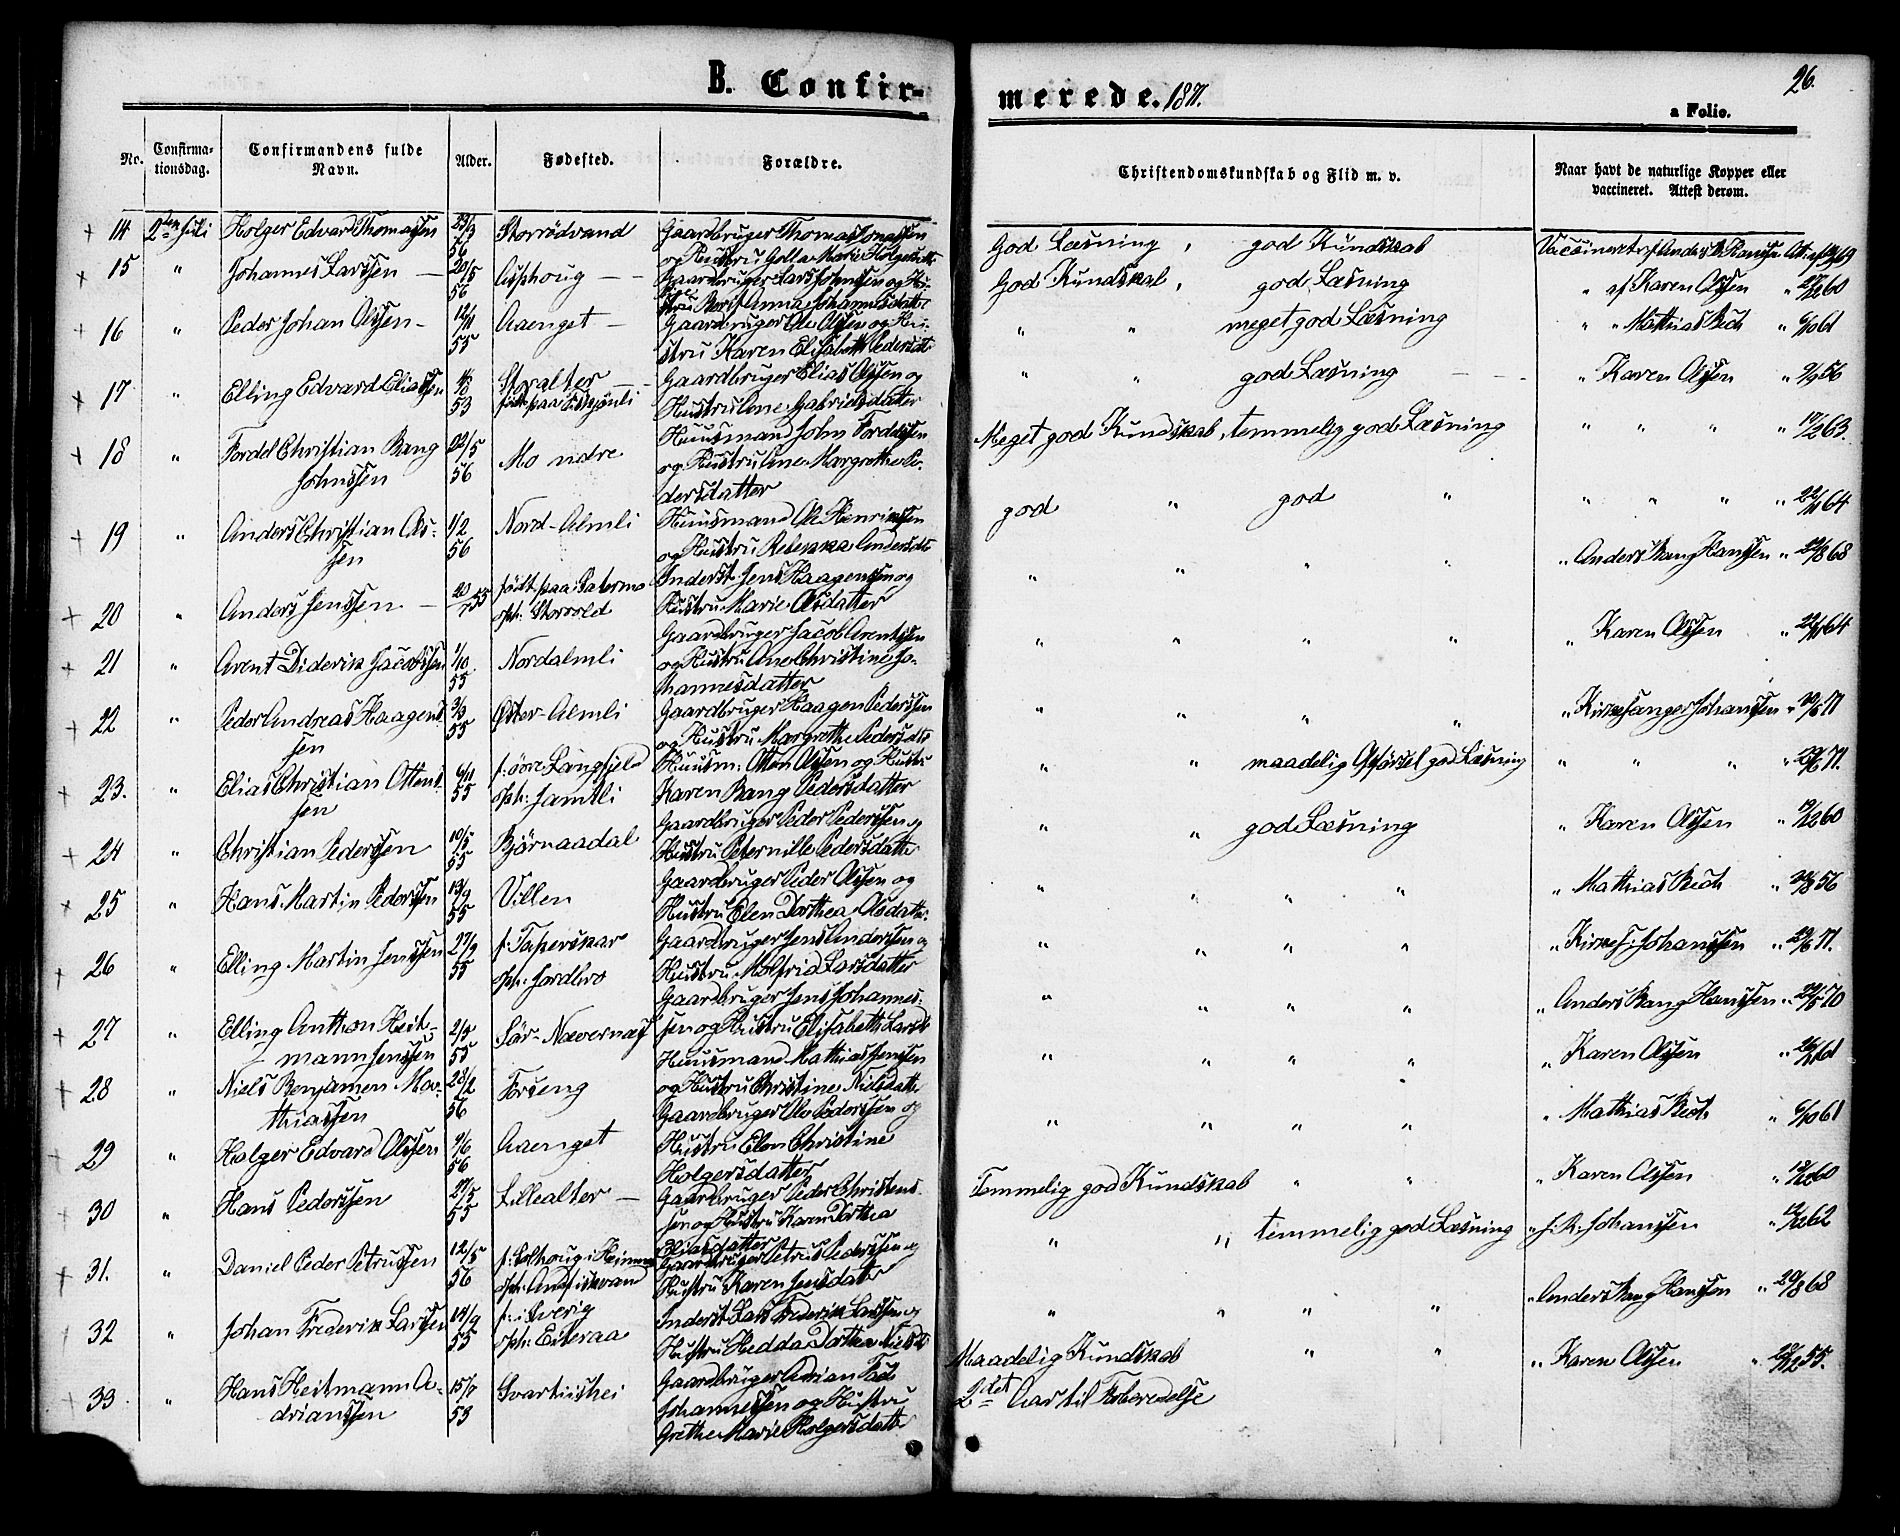 B. Confir-
merede. 1871.
26.
a Folio.
No.
Confirma-
tionsdag.
Confirmandens fulde
Navn.
Alder.
Fødested.
Forældre.
Christendomskundskab og Flid m. v.
Naar havt de naturlige Kopper eller
vaccineret. Attest derom.
14 2den Juli Holger Edvard Thomassen 23/3 56 Storrödvand Gaardbruger Thomas Jonassen
og Hustru Golla Marie Holgersdtr
God Læsning, god Kundskab Vaccineret af Anders B. Hanssen
15 " Johannes Larssen 20/5 56 Alsphoug Gaardbruger Lars Johnssen og Hu-
stru Berit Anna Johannesdatter
God Kundskab, god Læsning " af Karen Olssen " 60
16 " Peder Johan Olssen 12/11 55 Aaenget Gaardbruger Ole Olssen og Hu-
stru Karen Elisabeth Pedersdtr
" " meget god Læsning " " Mathias Bech " 6/10 61
17 " Elling Edvard Eliassen 53 Storalter
født paa
Gaardbruger Elias Olssen og
Hustru Ane Gabrielsdatter
" " god Læsning " Karen Olssen " 2/9 56
18 " Tordel Christian Bang
Johnssen 22/5 56 Mo nedre Huusmand John Tordelssen
og Hustru Ane Margrethe Pe-
dersdatter
Meget god Kundskab, temmelig god Læsning " " " " 63.
19 " Anders Christian Ols-
sen 1/2 56 Nord-Almli Huusmand Ole Henrikssen
og Hustru Rebekka Andersdtr
god " god " " " " " 22/11 64
20 " Anders Jenssen 20/7 55 født paa
oph: Storvold
Inderst Jens Haagenssen og
Hustru Marie Olsdatter
" " " " " Anders Bang Hanssen " 68
21 " Arent Diderik Jacobssen 1/10 55 Nordalmli Gaardbruger Jacob Arentssen
og Hustru Ane Christine Jo-
hannesdatter
" " " " " Karen Olssen " 22/11 64
22 " Peder Andreas Haagens-
sen 3/9 55 Øster-Almli Gaardbruger Haagen Pederssen
og Hustru Margrethe Pedersdtr
" " " " " Kirkesanger Johanssen " 71
23. " Elias Christian Ottens-
sen 6/11 55 f: øvre Langfjeld
oph: Jamtli
Huusm: Otten Olssen og Hustru
Karen Bang Pedersdatter
" " maadelig Opførsel god Læsning " " " " 71.
24 " Christian Pederssen 10/5 55 Bjørnaadal Gaardbruger Peder Pederssen og
Hustru Peternille Pedersdatter
" " god Læsning " Karen Olssen " 60
25 " Hans Martin Pederssen 13/9 55 Villen Gaardbruger Peder Olssen og
Hustru Elen Dorthea Olsdatter
" " " " " Mathias Bech " 56
26 " Elling Martin Jenssen 27/9 55 f: Taperskar
oph: Jordbro
Gaardbruger Jens Anderssen og
Hustru Molfrid Larsdatter
" " " " " Kirkes: Johanssen " 71.
27 " Elling Anthon Heit-
mann Jenssen 2/5 55 Sør-Nævernæs Gaardbruger Jens Johannes-
sen og Hustru Elisabeth Larsdtr
" " " " " Anders Bang Hanssen " 70
28 " Niels Benjamen Ma-
thiassen 28/2 56 Forseng Huusmand Mathias Jenssen
og Hustru Christine Nielsdatter
" " " " " Karen Olssen " 61
29 " Holger Edvard Olssen 9/6 56 Aaenget Gaardbruger Ole Pederssen og
Hustru Elen Christine
Holgersdatter
" " " " " Mathias Bech " 6/10 61
30 " Hans Pederssen 27/5 55 Lillealter Gaardbruger Peder Christens-
sen og Hustru Karen Dorthea
Eliasdatter
Temmelig god Kundskab " " " Karen Olssen " 60
31. " Daniel Peder Petrussen 12/5 56 f: Solhoug i Hemnes
oph:
Gaardbruger Petrus Pederssen og
Hustru Karen Jensdatter
" " temmelig god Læsning " J. R: Johanssen " 62
32 " Johan Frederik Larssen 14/9 55 f: i Sverig
oph: Eiteraa
Inderst Lars Frederik Larssen og
Hustru Hedda Dorthea Nielsdtr
" " " " " Anders Bang Hanssen " 20/8 68
33. " Hans Heitmann A-
drianssen 15/7 53 Svartishei Gaardbruger Adrian
Johannessen og Hustru
Grethe Marie Holgersdatter
Maadelig Kundskab " " " Karen Olssen " 55.
2det Aar til Forberedelse